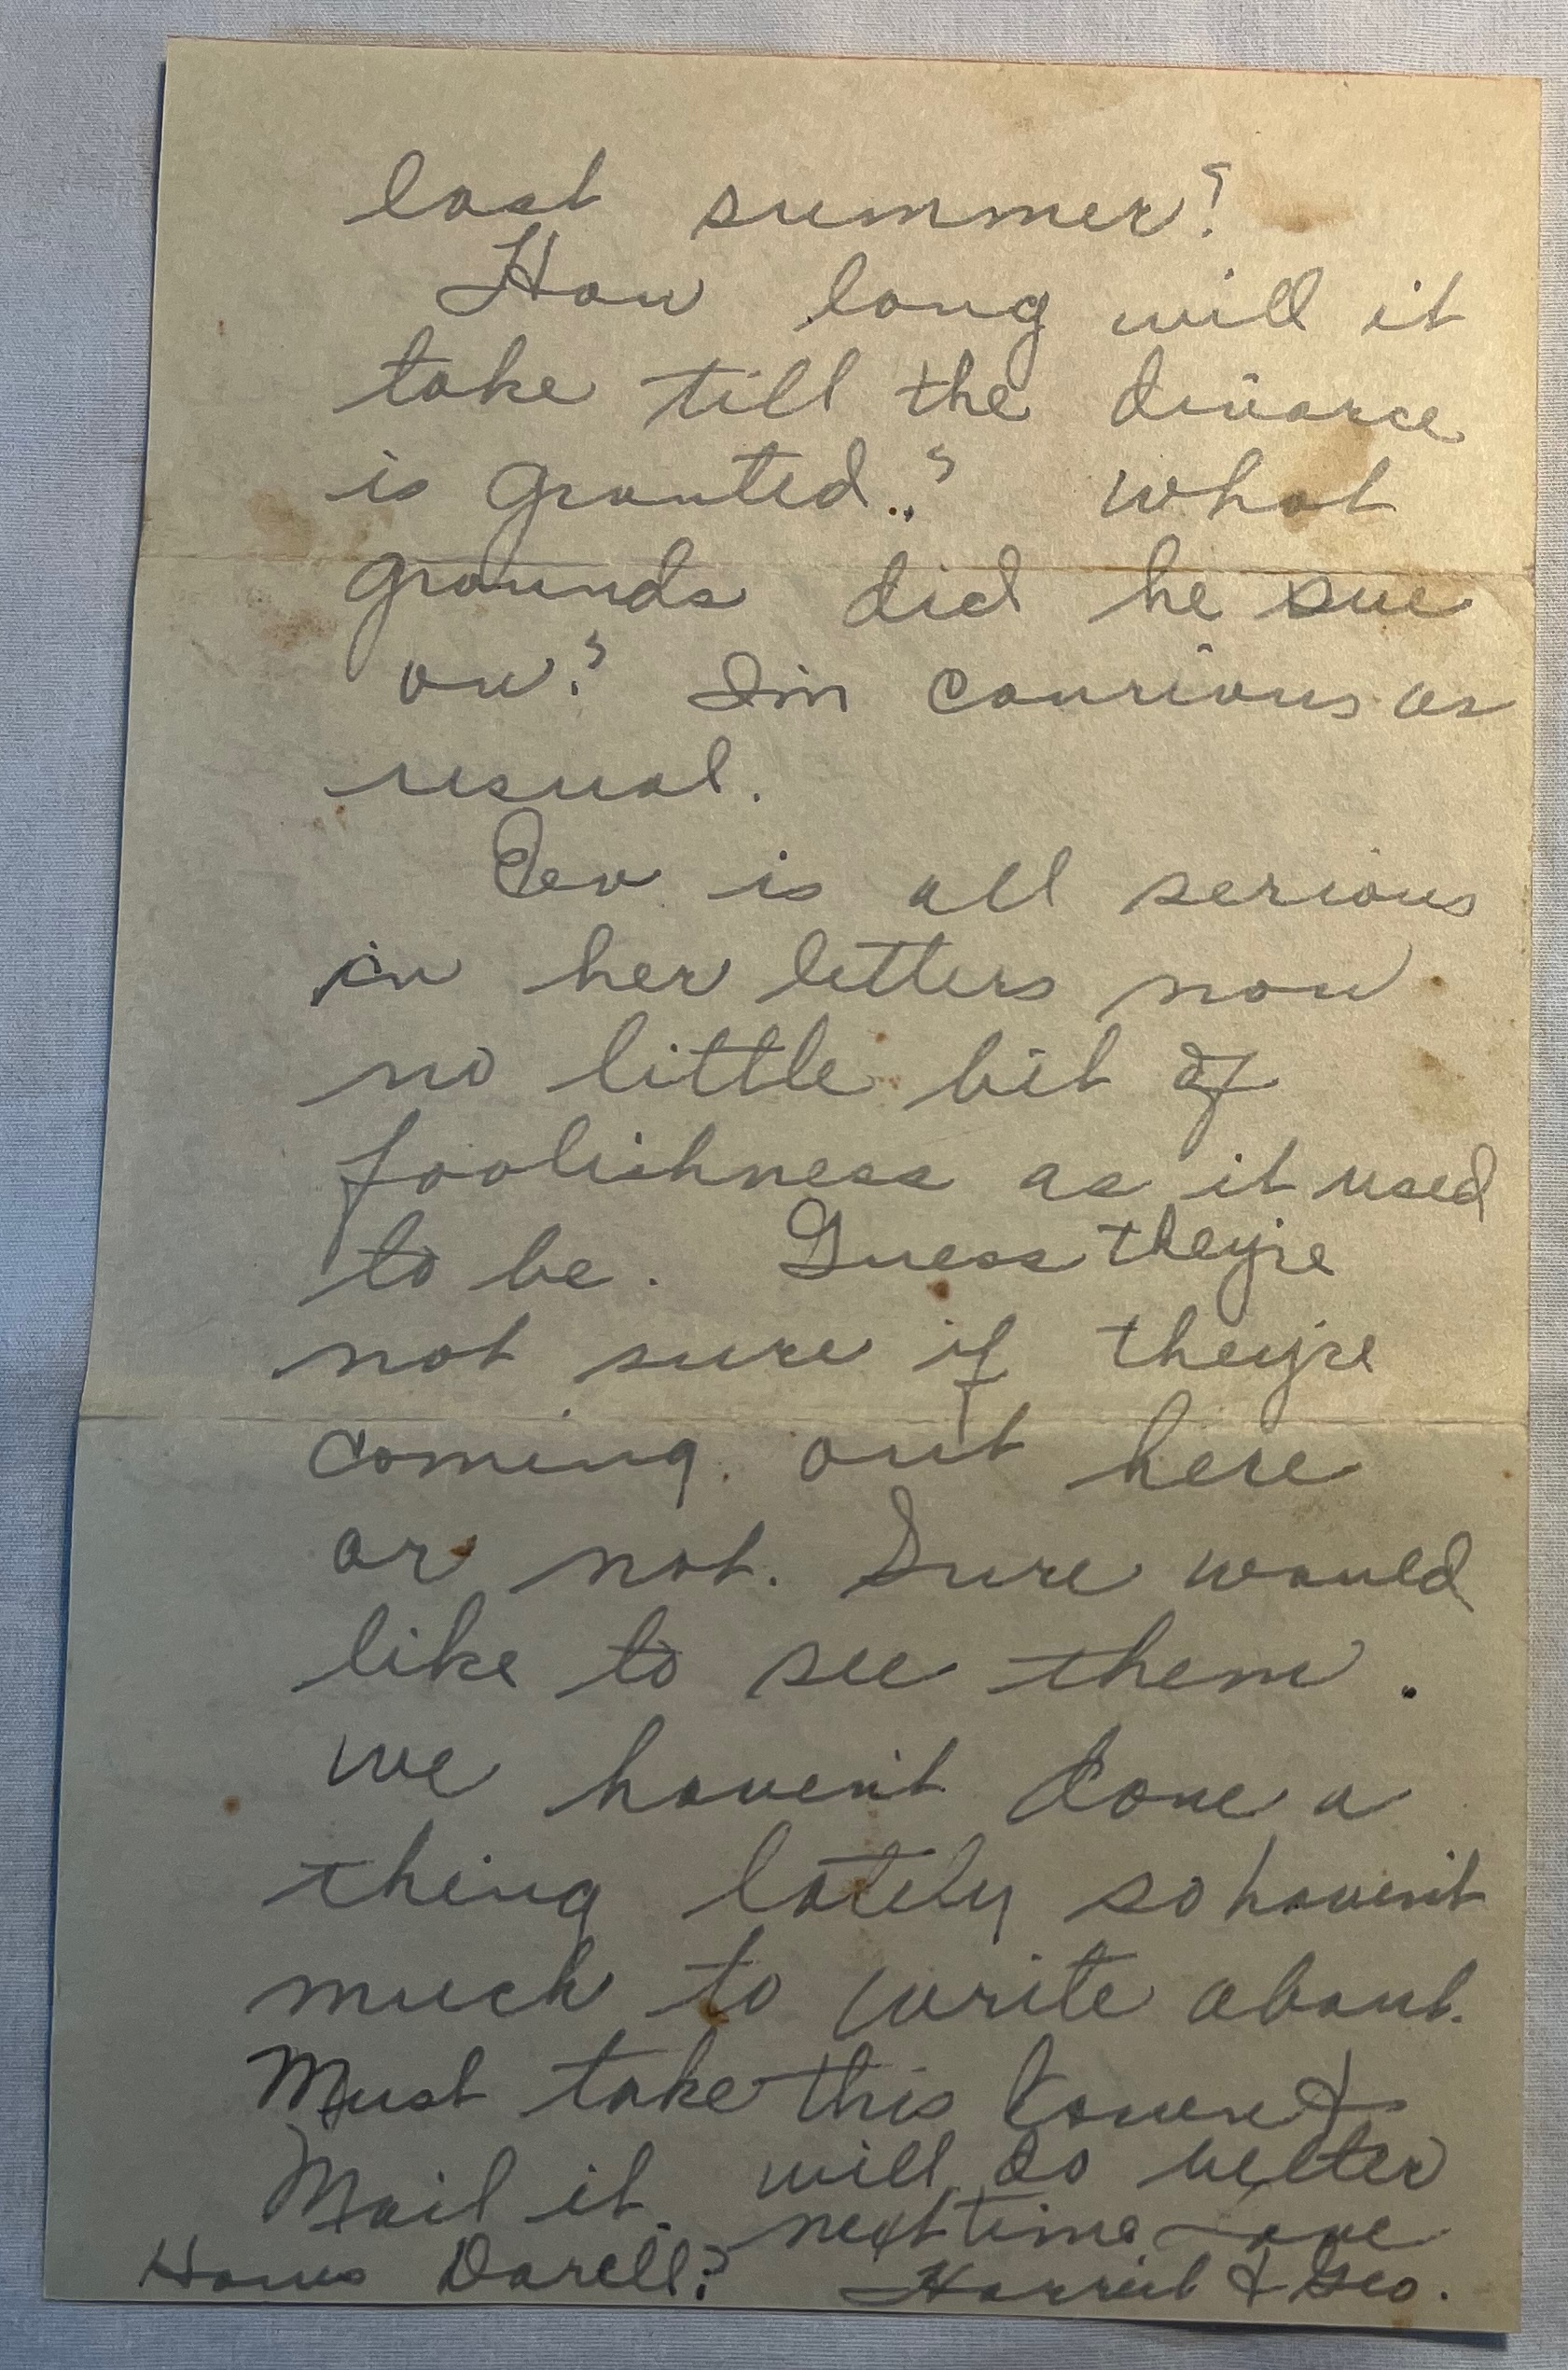 last summer?
How long will it
take till the divorce
is granted..? What
grounds did he sue
on? I'm courious as
usual.
is all serious
in her letters now
no little bit of
foolishness as it used
to be. Guess they're
not sure if they're
coming out here
or not. Sure would
like to see them.
we haven't done a
thing lately so haven't
much to write about.
Must take this &
Mail it. will do better
next time
Hows Darell? Harriet & Geo.